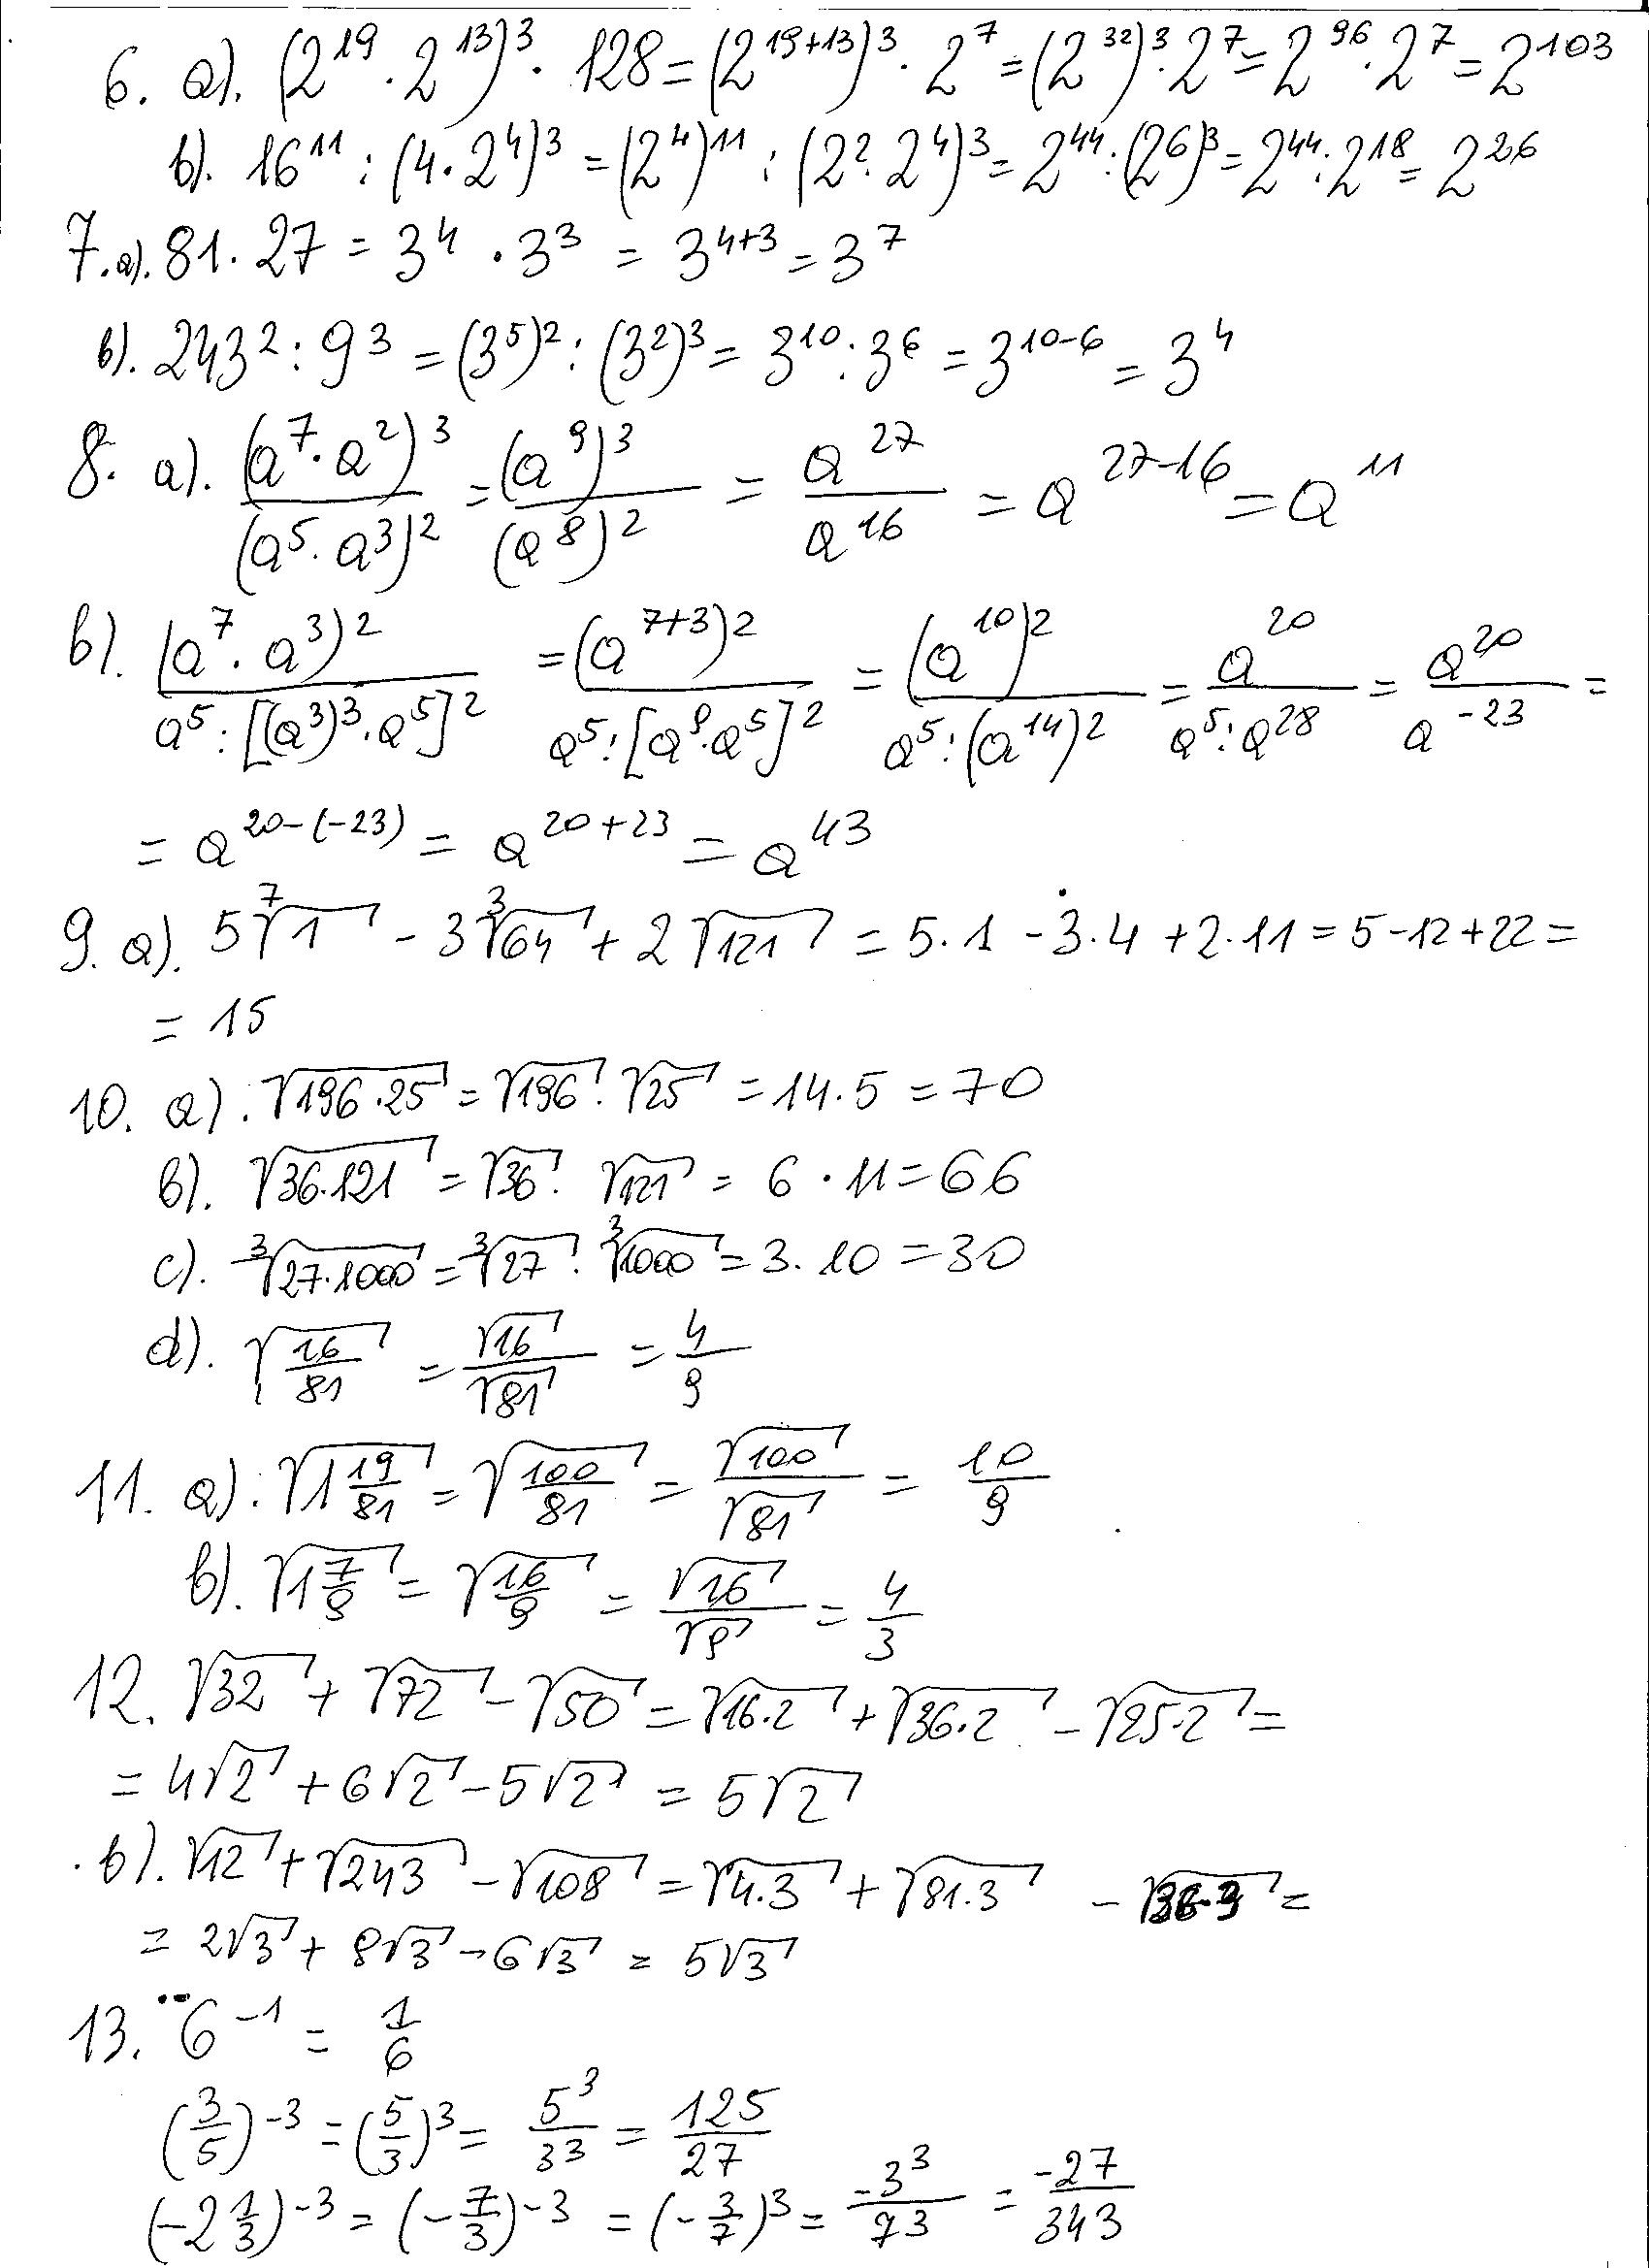 6. a). (2^19 · 2^13)^3 · 128 = (2^19+13)^3 · 2^7 = (2^32)^3 · 2^7 = 2^96 · 2^7 = 2^103
b). 16^11 : (4 · 2^4)^3 = (2^4)^11 : (2^2 · 2^4)^3 = 2^44 : (2^6)^3 = 2^44 : 2^18 = 2^26
7. a). 81 · 27 = 3^4 · 3^3 = 3^4+3 = 3^7
b). 243^2 : 9^3 = (3^5)^2 : (3^2)^3 = 3^10 : 3^6 = 3^10-6 = 3^4
8. a). (a^7 · a^2)^3 / (a^5 · a^3)^2 = (a^9)^3 / (a^8)^2 = a^27 / a^16 = a^27-16 = a^11
b). (a^7 · a^3)^2 / a^5 : [(a^3)^3 · a^5]^2 = (a^7+3)^2 / a^5 : [a^9 · a^5]^2 = (a^10)^2 / a^5 : (a^14)^2 = a^20 / a^5 : a^28 = a^20 / a^-23 =
= a^20-(-23) = a^20+23 = a^43
9. a). 5 ⁷√1 - 3 ³√64 + 2 √121 = 5 · 1 - 3 · 4 + 2 · 11 = 5 - 12 + 22 =
= 15
10. a). √196 · 25 = √196 · √25 = 14 · 5 = 70
b). √36 · 121 = √36 · √121 = 6 · 11 = 66
c). ³√27 · 1000 = ³√27 · ³√1000 = 3 · 10 = 30
d). √16/81 = √16 / √81 = 4/9
11. a). √1 19/81 = √100/81 = √100 / √81 = 10/9
b). √1 7/9 = √16/9 = √16 / √9 = 4/3
12. √32 + √72 - √50 = √16 · 2 + √36 · 2 - √25 · 2 =
= 4√2 + 6√2 - 5√2 = 5√2
b). √12 + √243 - √108 = √4 · 3 + √81 · 3 - √36 · 3 =
= 2√3 + 9√3 - 6√3 = 5√3
13. 6^-1 = 1/6
(3/5)^-3 = (5/3)^3 = 5^3 / 3^3 = 125/27
(-2 1/3)^-3 = (-7/3)^-3 = (-3/7)^3 = -3^3 / 7^3 = -27/343